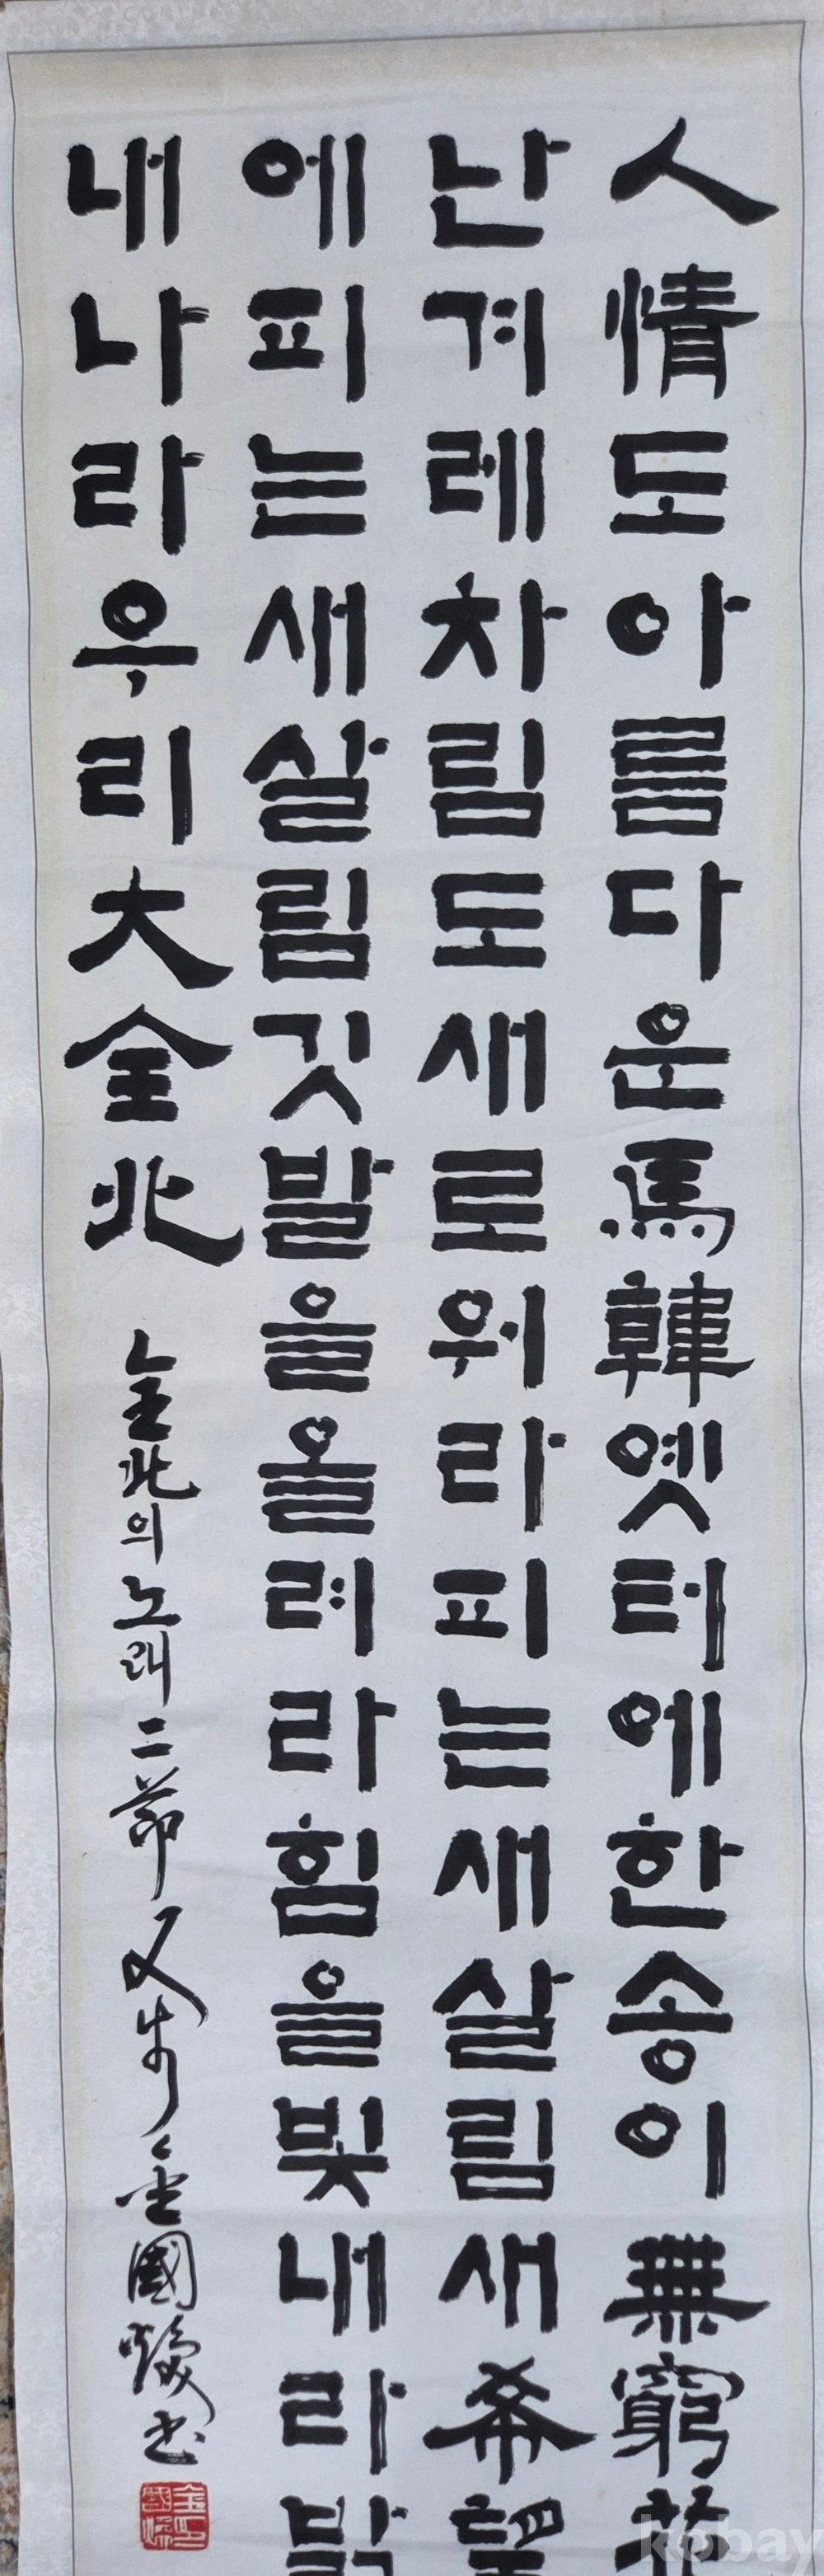 人情도아름다운馬韓옛터에한송이無窮花
난겨레차림도새로워라피는새살림새希望
에피는새살림깃발을올려라힘을빛내라밝
내나라우리大全北
全北의노래二節 又步金國煥書
kobay